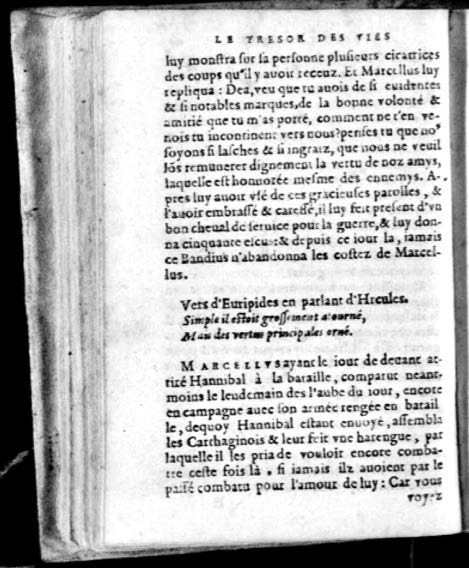 LE TRESOR DES VIES
luy monstra sur sa personne plusieurs cicatrices
des coups qu'il y auoit receuz. Et Marcellus luy
repliqua : Dea, veu que tu auois de si euidentes
& si notables marques, de la bonne volonté &
amitié que tu m'as porté, comment ne t'en ve-
nois tu incontinent vers nous? penses tu que no9
soyons si lasches & si ingratz, que nous ne veuil
lõs remunerer dignement la vertu de noz amys,
laquelle est honnorée mesme des ennemys. A-
pres luy auoir vsé de ces gracieuses parolles, &
l'auoir embrassé & caressé, il luy feit present d'vn
bon cheual de seruice pour la guerre, & luy don-
na cinquante escus: & depuis ce iour la, iamais
ce Bandius n'abandonna les costez de Marcel-
lus.
Vers d'Euripides en parlant d'Hrcules.
Simple il estoit grossement atourné,
Mais des vertus principales orné.
MARCELLVS ayant le iour de deuant at-
tiré Hannibal à la bataille, comparut neant-
moins le leudemain des l'aube du iour, encore
en campagne auec son armée rengée en batail
le, dequoy Hannibal estant ennuyé, assembla
les Carthaginois & leur feit vne harengue, par
laquelle il les pria de vouloir encore comba-
tre ceste fois là, si iamais ilz auoient par le
passé combatu pour l'amour de luy : Car vous
voyez